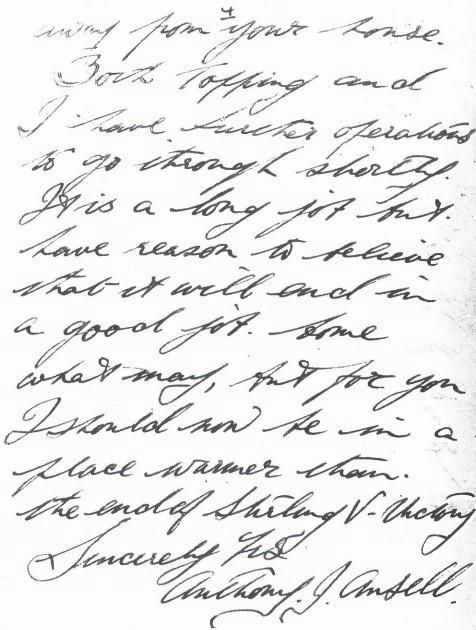 away from your house.
Both Topping and
I have further operations
to go through shortly.
It is a long job but.
have reason to believe
that it will end in
a good job. Come
what may, but for you
I should now be in a
place warmer than.
the end of Stirling V- Victory
Sincerely Yrs
Anthony. J. Ansell.